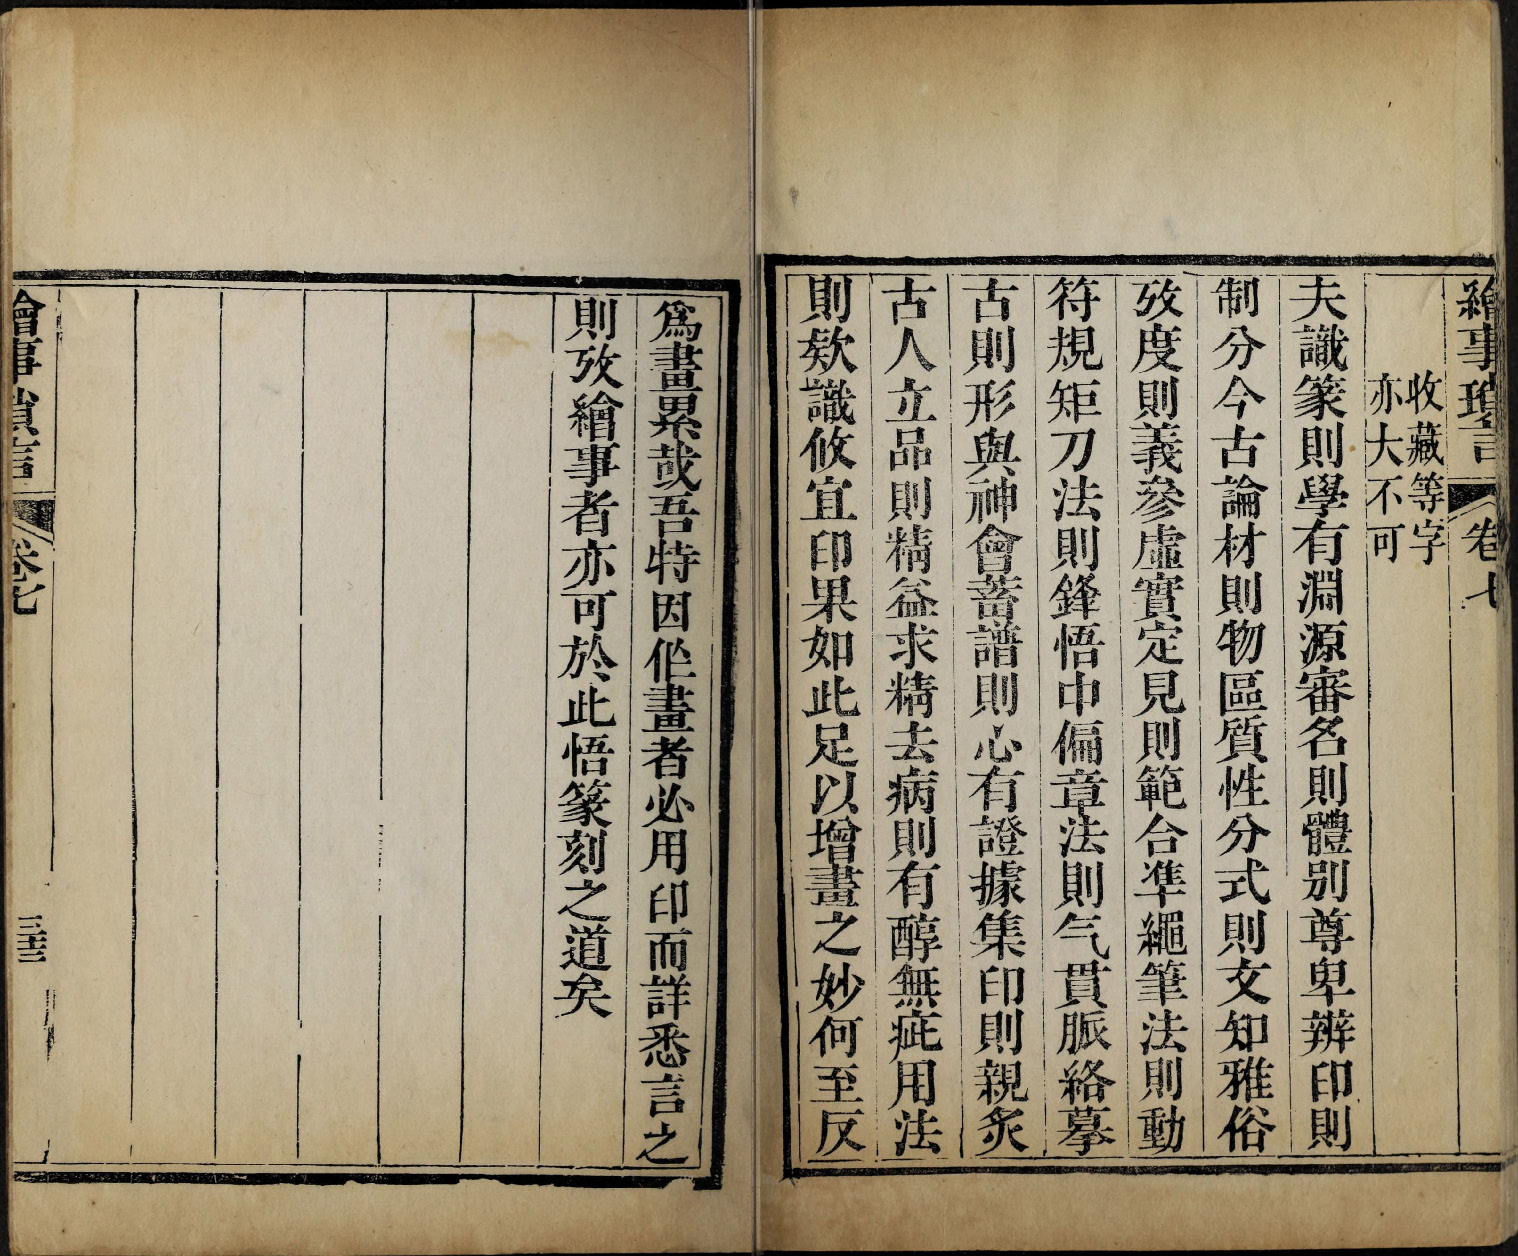 繪事瑣言
卷七
收藏等字
亦大不可
夫識篆則學有淵源審名則體別尊卑辨印則
制分今古論材則物區質性分式則文知雅俗
攷度則義參虛實定見則範合準繩筆法則動
符規矩刀法則鋒悟中偏章法則气貫脈絡摹
古則形與神會蓄譜則心有證據集印則親炙
古人立品則精益求精去病則有醇無疵用法
則欵識攸宜印果如此足以增畫之妙何至反
爲畫累哉吾特因作畫者必用印而詳悉言之
則攷繪事者亦可於此悟篆刻之道矣
繪事瑣言
卷七